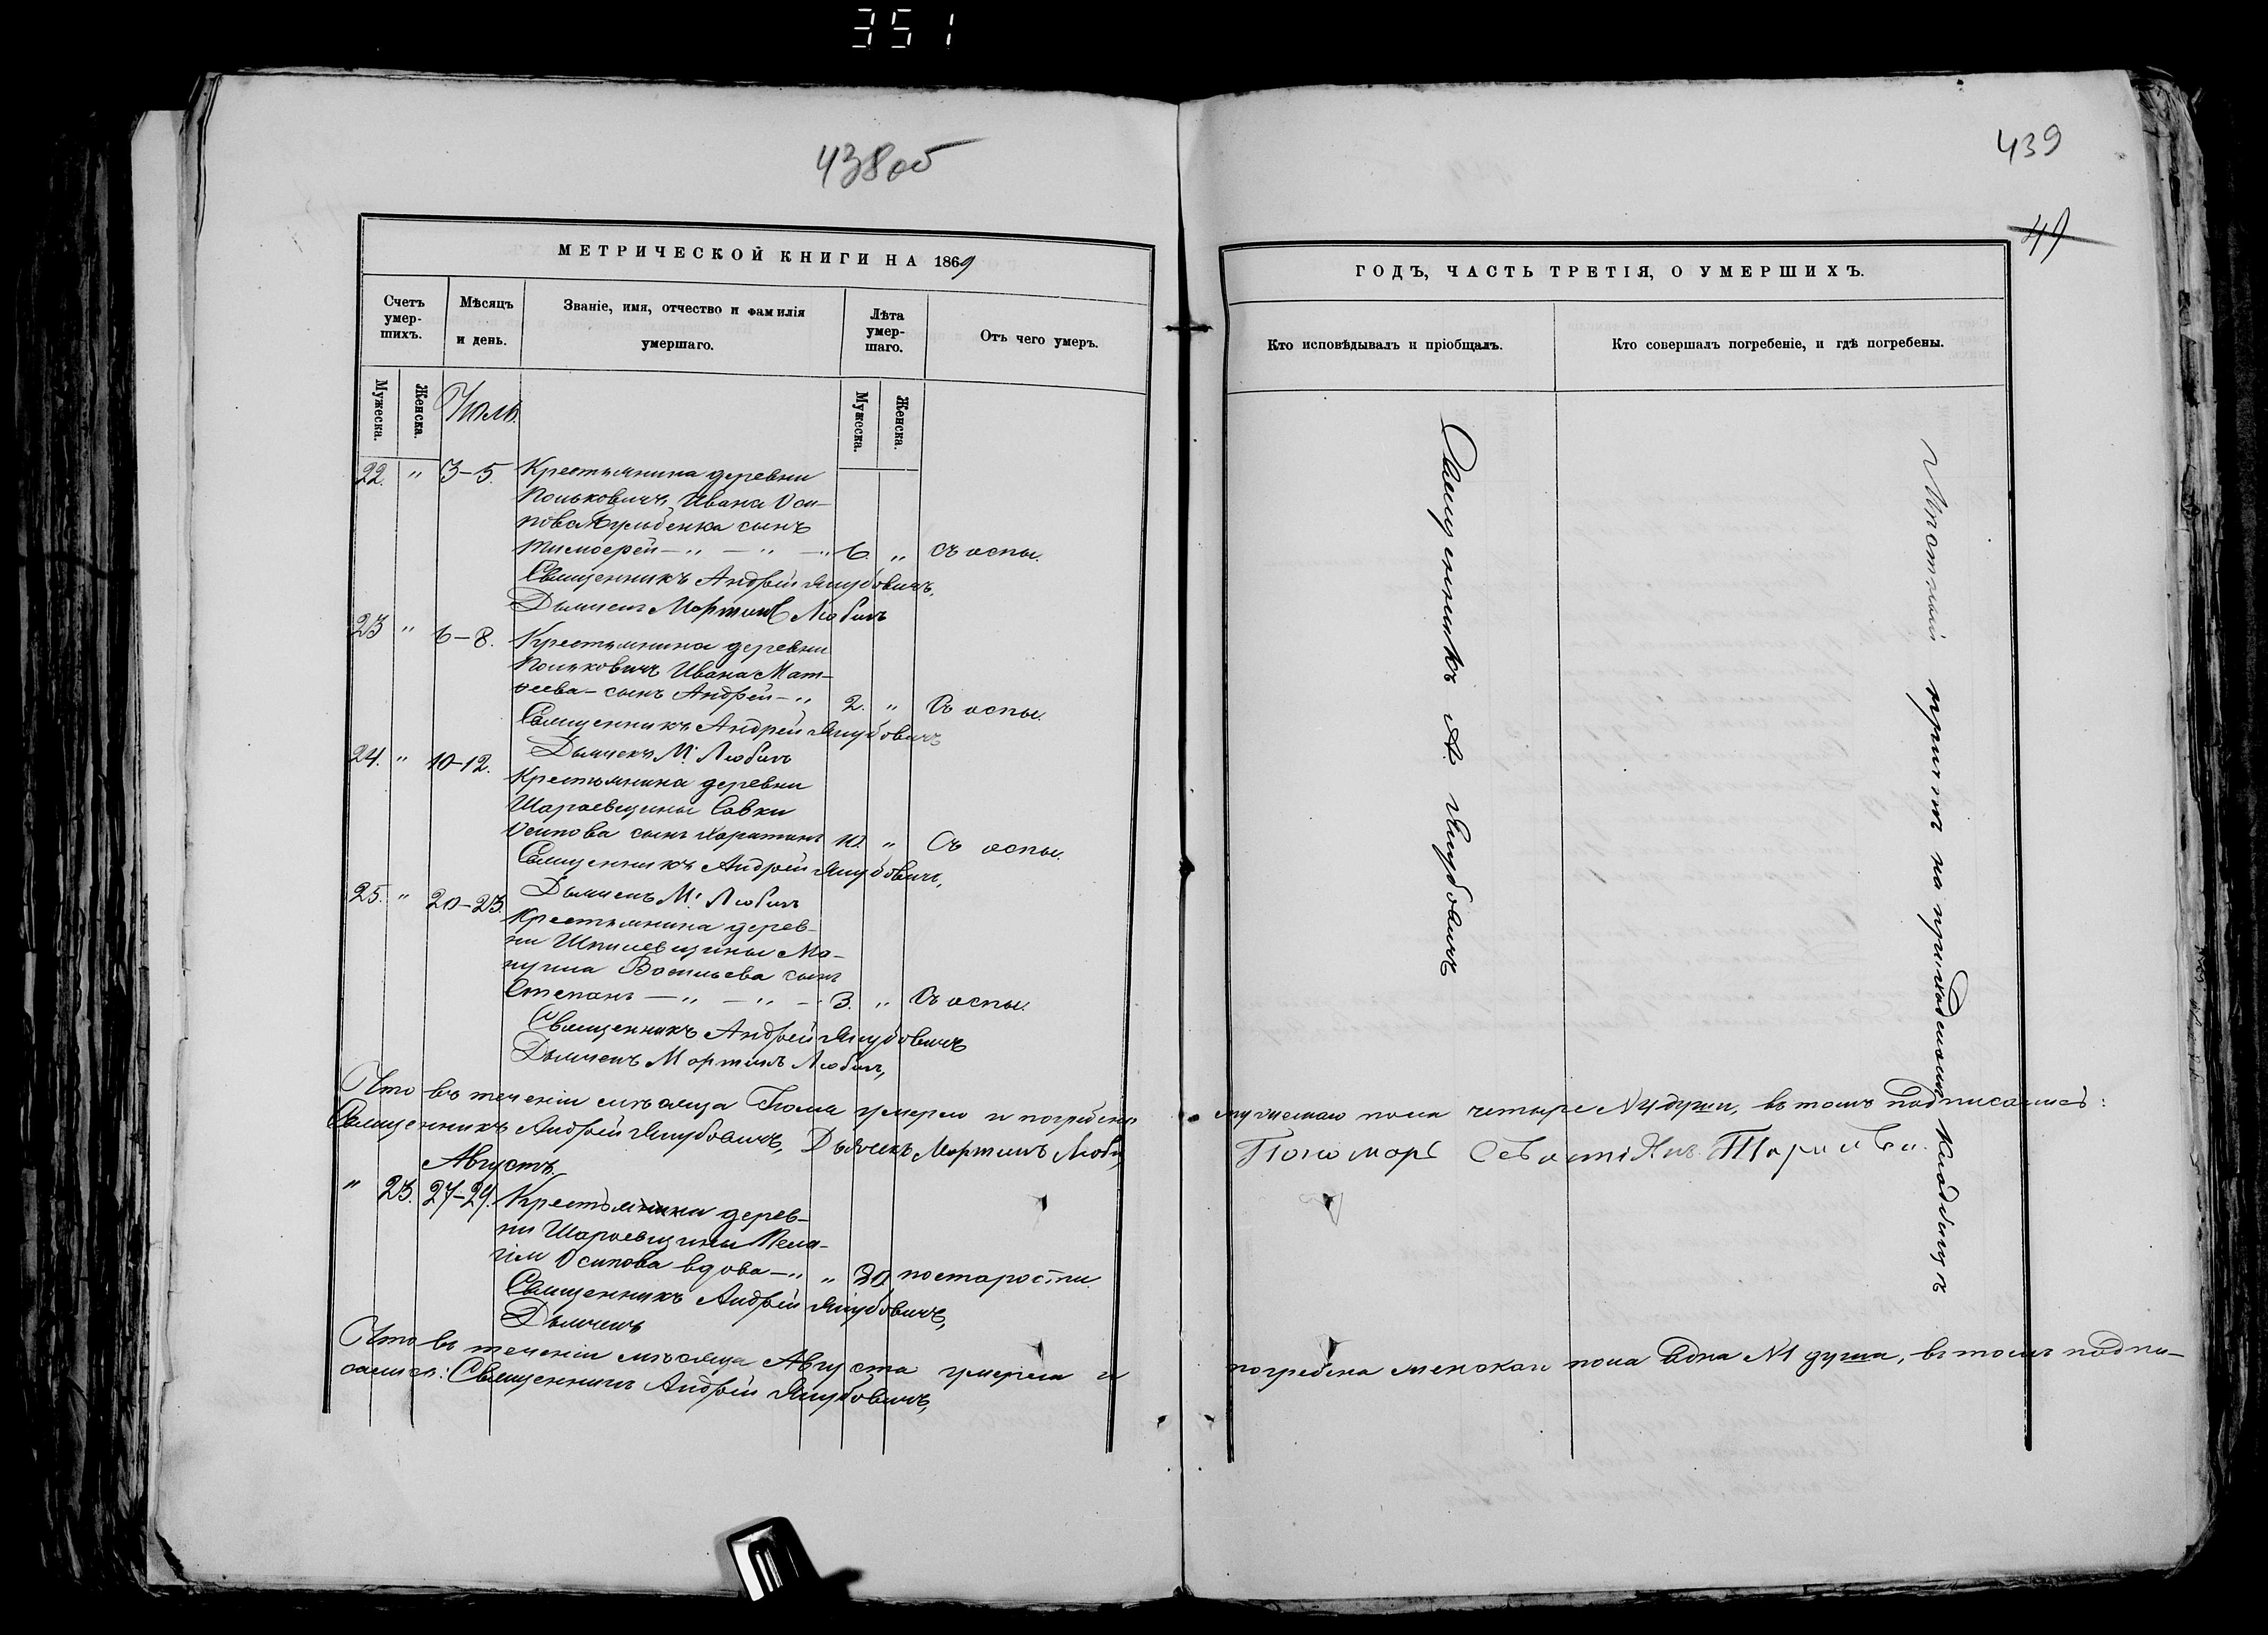 351
438об
МЕТРИЧЕСКОЙ КНИГИ НА 1869
Счетъ умер-шихъ.
Мѣсяцъ и день.
Званіе, имя, отчество и фамилія умершаго.
Лѣта умер-шаго.
Отъ чего умеръ.
Мужеска.
Женска.
Июль.
Мужеска.
Женска.
22. " 3-5. Крестьянина деревни
Ивана Оси-
пова сынъ
Тимофей — " — " — " 6 " Съ оспы.
Священникъ Андрей Якубовичъ,
Дьячекъ Мартинъ Любичъ
23 " 6-8. Крестьянина деревни
Ивана Мат-
ѳеева - сынъ Андрей — " 2. " Съ оспы.
Священникъ Андрей Якубовичъ
Дьячекъ М. Любичъ
24. " 10-12. Крестьянина деревни
Шараевщины Савки
Осипова сынъ Харитонъ 10. " Съ оспы.
Священникъ Андрей Якубовичъ,
Дьячекъ М. Любичъ
25. " 20-23. Крестьянина дерев-
ни Шпилевщины Ма-
Васильева сынъ
Степанъ — " — " — " 3. " Съ оспы.
Священникъ Андрей Якубовичъ
Дьячекъ Мартинъ Любичъ,
Что въ теченіи мѣсяца Іюля умерло и погребено
Священникъ Андрей Якубовичъ, Дьячекъ Мартинъ Люби
Августъ.
" 23. 27-29. Крестьянка дерев-
ни Шараевщины Пела-
гія Осипова вдова — " " 80. по старости.
Священникъ Андрей Якубовичъ,
Дьячекъ
Что въ теченіи мѣсяца Августа умерла и
сались: Священникъ Андрей Якубовичъ,
439
49
ГОДЪ, ЧАСТЬ ТРЕТІЯ, О УМЕРШИХЪ.
Кто исповѣдывалъ и пріобщалъ.
Кто совершалъ погребеніе, и гдѣ погребены.
Священникъ А. Якубовичъ
Мѣстный причтъ на приходскомъ кладбищѣ
мужескаго пола четыре №4 души, въ томъ подписались:
Пономарь
погребена женскаго пола одна №1 душа, въ томъ подпи-